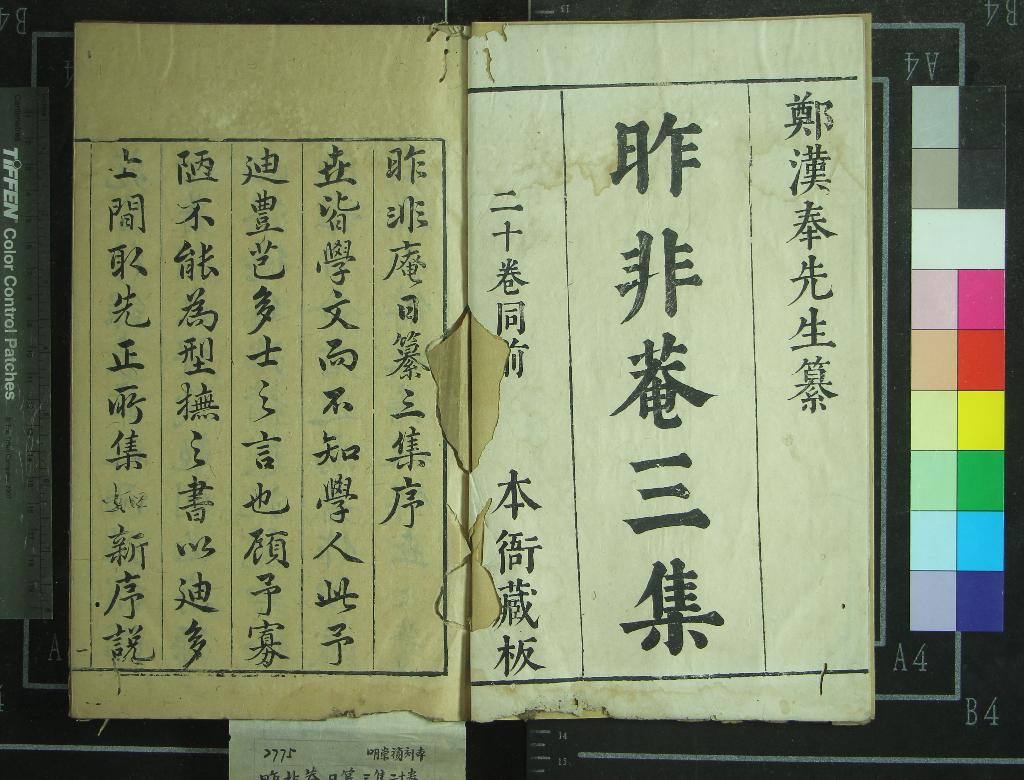 鄭漢奉先生纂
昨非菴三集
二十卷同前
本衙藏板
昨非庵日纂三集序
世皆學文而不知學人此予
迪豊芑多士之言也顧予寡
陋不能為型撫之書以迪多
士間取先正所集如新序說
一
TIFFEN Color Control Patches
A4
A4
B4
B4
B4
14
15
13
2775
明崇禎刻本